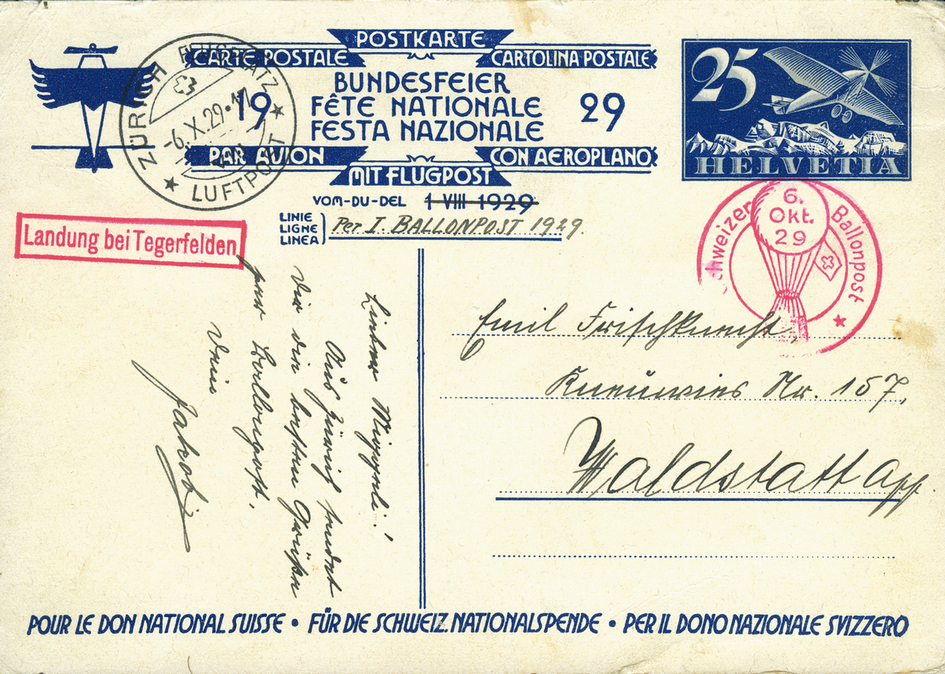 POSTKARTE
CARTE POSTALE
CARTOLINA POSTALE
BUNDESFEIER
FÊTE NATIONALE
FESTA NAZIONALE
19 29
PAR AVION
CON AEROPLANO
MIT FLUGPOST
VOM-DU-DEL 1 VIII 1929
LINIE
LIGNE
LINEA
Per I. BALLONPOST 1929.
25
HELVETIA
ZÜRICH FLUGPLATZ
-6.X.29.17
LUFTPOST
Landung bei Tegerfelden
Schweizer Ballonpost
6.
Okt.
29
Emil Frischknecht,
Nr. 157,
Waldstatt App.
Lieber
Aus Zürich sendet
Dir die besten Grüße
per Ballonpost,
Dein
Jakob
POUR LE DON NATIONAL SUISSE • FÜR DIE SCHWEIZ. NATIONALSPENDE • PER IL DONO NAZIONALE SVIZZERO